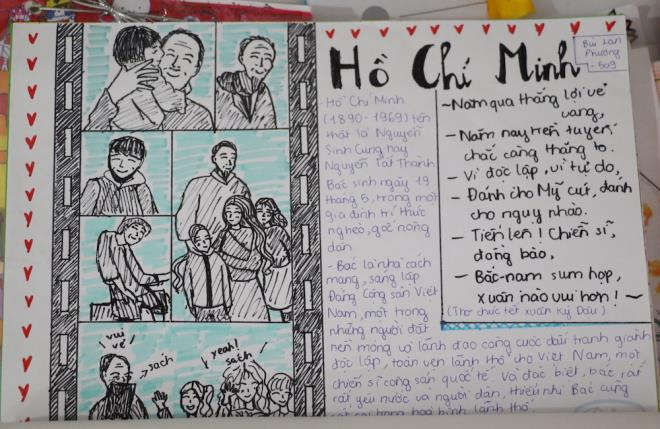 Hồ Chí Minh
Bùi Lan
Phương
- 609
Hồ Chí Minh
(1890-1969) tên
thật là Nguyễn
Sinh Cung hay
Nguyễn Tất Thành
Bác sinh ngày 19
tháng 6, trong một
gia đình trí thức
nghèo, gốc nông
dân
- Bác là nhà cách
mạng, sáng lập
Đảng Cộng sản Việt
Nam, một trong
những người đặt
nền móng và lãnh đạo công cuộc đấu tranh giành
độc lập, toàn vẹn lãnh thổ cho Việt Nam, một
chiến sĩ cộng sản quốc tế. Và đặc biệt, bác rất
rất yêu nước và người dân, thiếu nhi Bác cũng
hoà bình lãnh thổ.
~Năm qua thắng lợi vẻ
vang,
- Năm nay trên tuyến
chắc càng thắng to.
- Vì độc lập, vì tự do,
- Đánh cho Mỹ cút, đánh
cho nguỵ nhào.
- Tiến lên! Chiến sĩ,
đồng bào,
- Bắc-nam sum họp,
xuân nào vui hơn! ~
(Thơ chúc tết xuân Kỷ Dậu)
vui
vẻ
sách
yeah!
sách